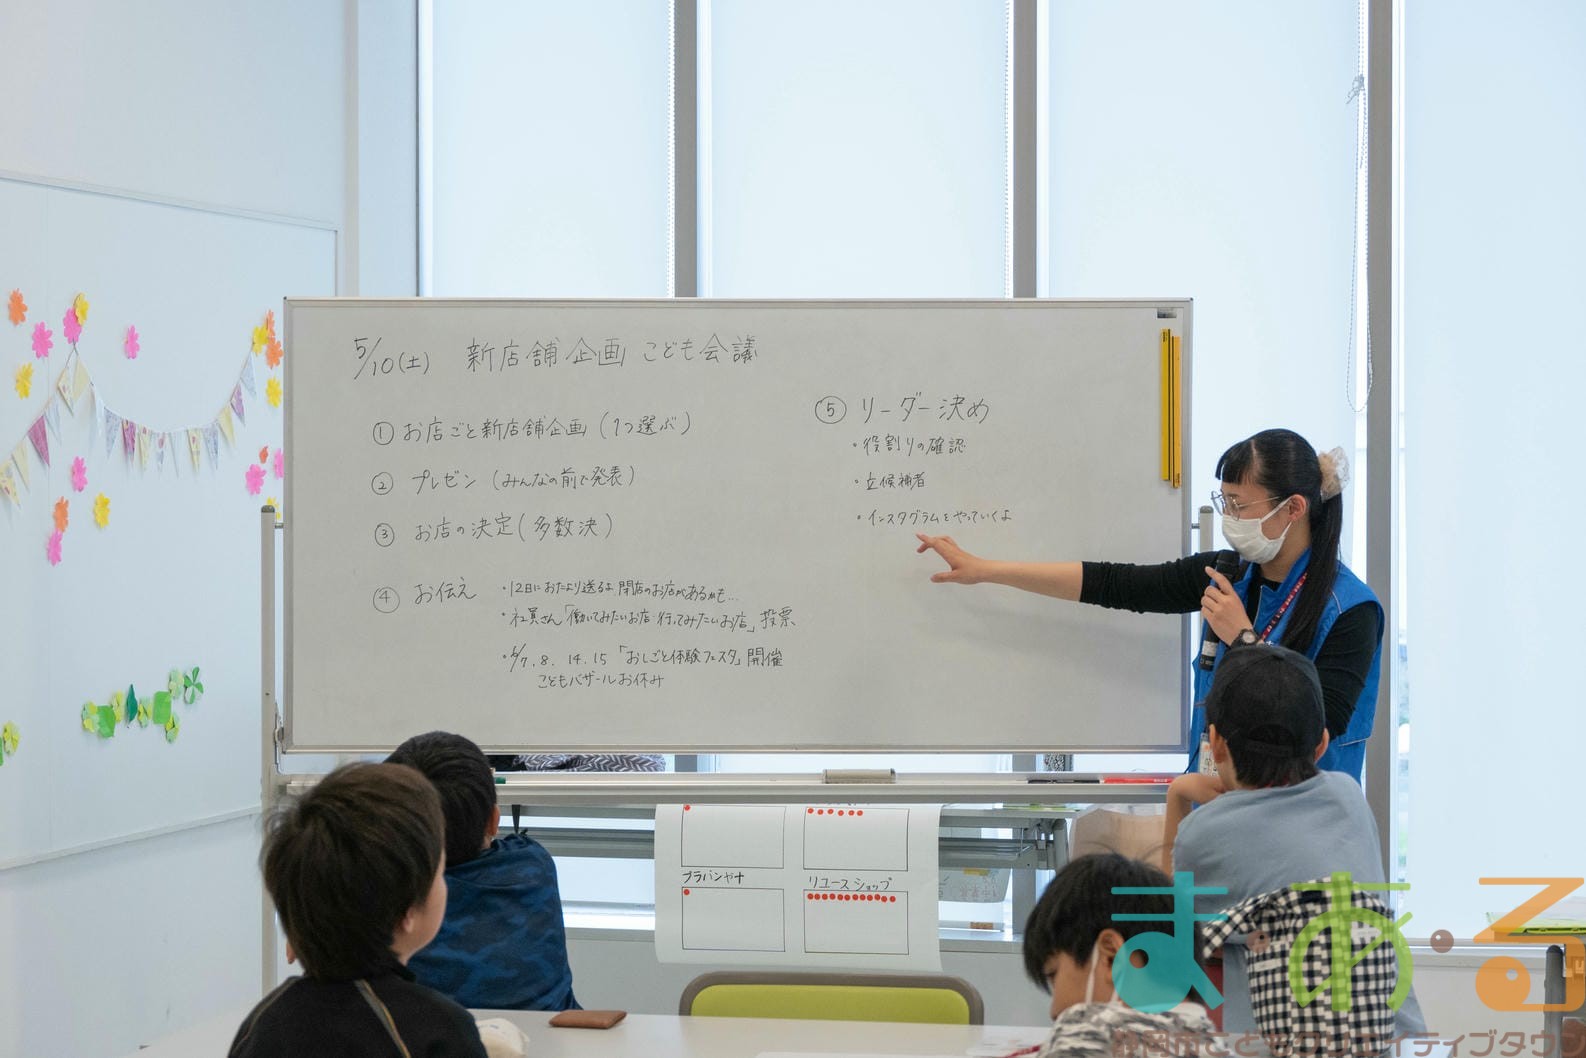 5/10(土) 新店舗企画 こども会議
① お店ごと新店舗企画 (1つ選ぶ)
② プレゼン (みんなの前で発表)
③ お店の決定(多数決)
④ お伝え
・12日におたより送るよ 閉店のお店があるかも...
・社員さん「働いてみたいお店・行ってみたいお店」投票
・6/7. 8. 14. 15 「おしごと体験フェスタ」開催
こどもバザールお休み
⑤ リーダー決め
・役割りの確認
・立候補者
・インスタグラムをやっていくよ
プラバンヤナ
リユースショップ
ま・あ・る
静岡市こどもクリエイティブタウン